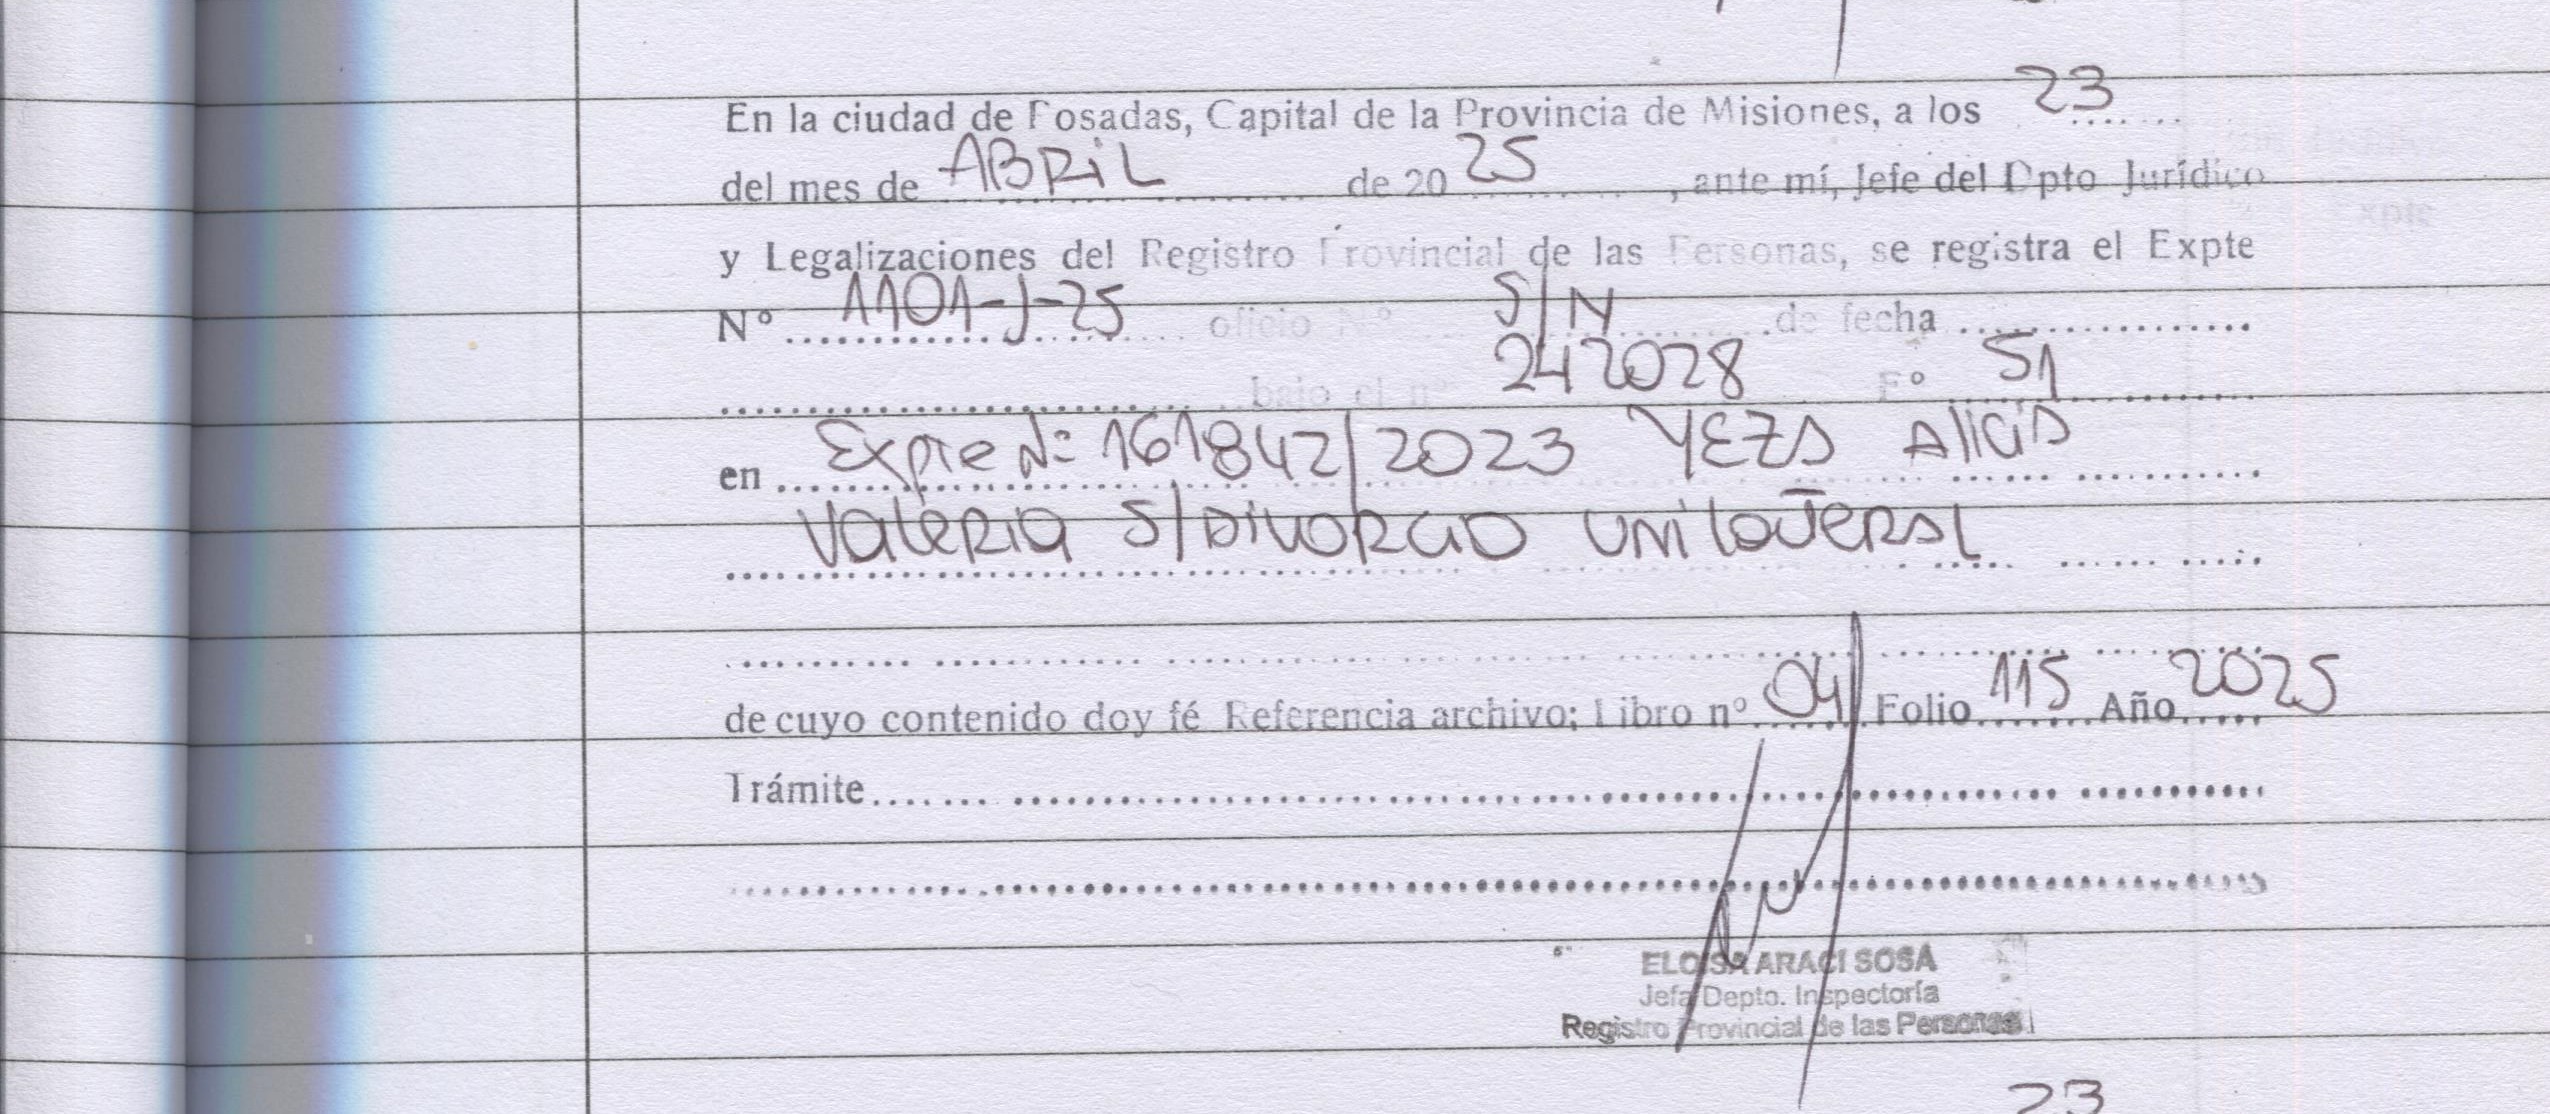 En la ciudad de Posadas, Capital de la Provincia de Misiones, a los 23
del mes de ABRIL de 20 25, ante mí, Jefe del Dpto Jurídico
y Legalizaciones del Registro Provincial de las Personas, se registra el Expte
N° 1101-J-25 oficio N° S/N de fecha
bajo el n° 242028 F° 51
en Expte N= 161842/2023 YEZA Alicia
Valeria S/DIVORCIO UNILATERAL
de cuyo contenido doy fé Referencia archivo; Libro n° 04 Folio 115 Año 2025
Trámite
ELOISA ARACI SOSA
Jefa Depto. Inspectoría
Registro Provincial de las Personas
23